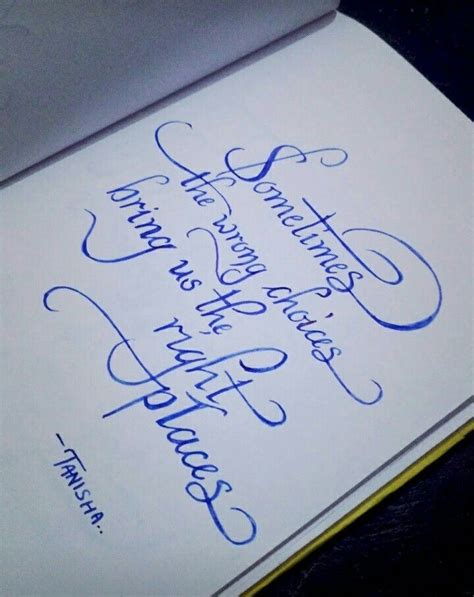 Sometimes
the wrong choices
bring us the
right
places
-TANISHA..